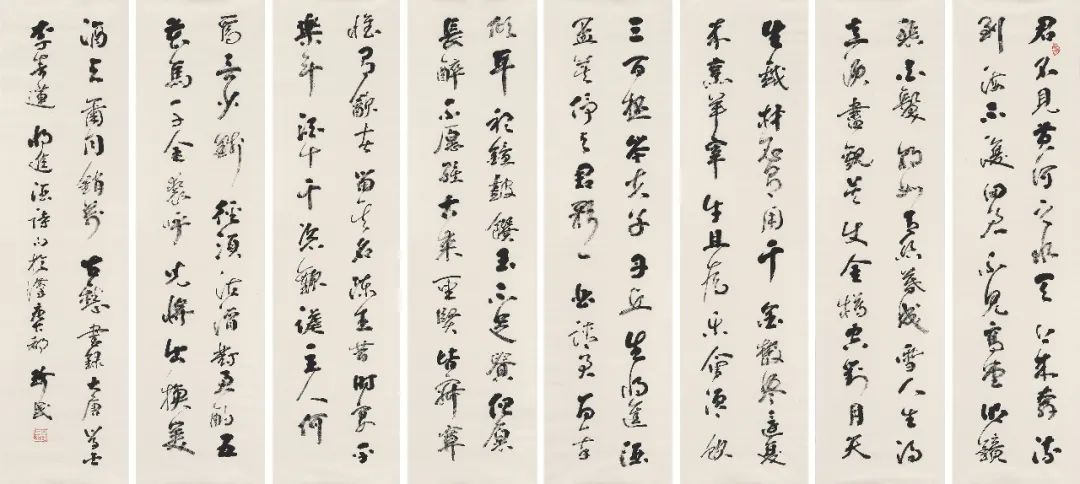 君不見黃河之水天上來奔流
到海不復回君不見高堂明鏡
悲白髮朝如青絲暮成雪人生得
意須盡歡莫使金樽空對月天
生我材必有用千金散盡還復
來烹羊宰牛且為樂會須飲
三百杯岑夫子丹丘生將進酒
盃莫停與君歌一曲請君為我
傾耳聽鐘鼓饌玉不足貴但願
長醉不愿醒古來聖賢皆寂寞
惟有飲者留其名陳王昔時宴平
樂斗酒十千恣歡謔主人何
為言少錢徑須沽酒對君酌五
花馬千金裘呼兒將出換美
酒與爾同銷萬古愁書錄大唐學士
李青蓮將進酒詩